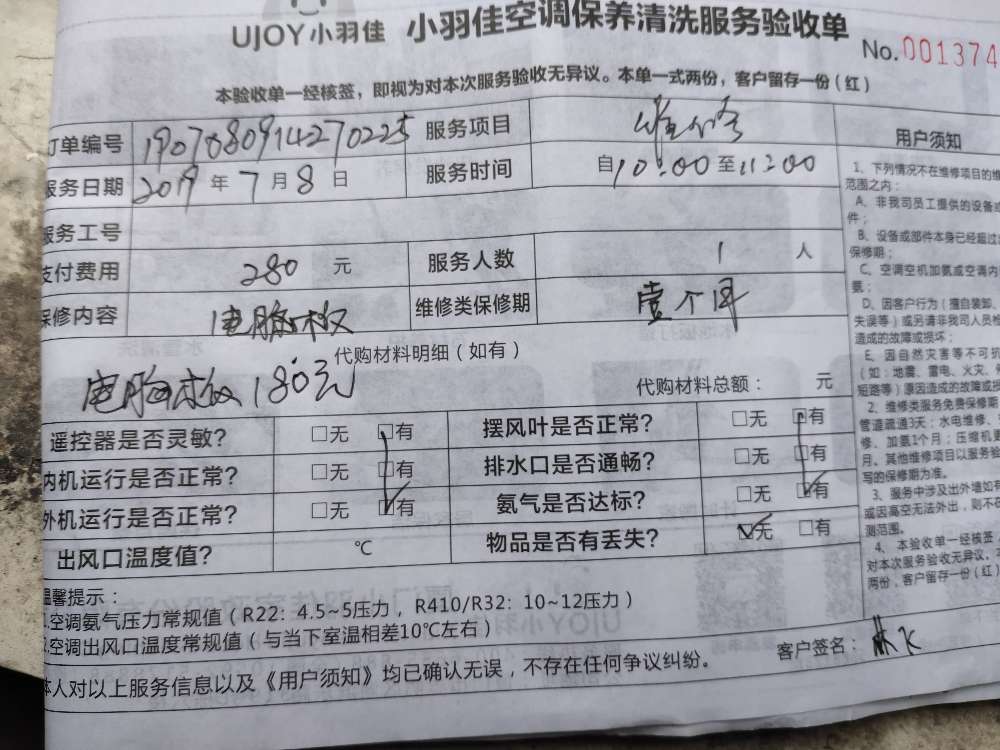 UJOY小羽佳 小羽佳空调保养清洗服务验收单
No.001374
本验收单一经核签，即视为对本次服务验收无异议。本单一式两份，客户留存一份（红）
订单编号 190708091427022 服务项目 维修 用户须知
服务日期 2019 年 7 月 8 日 服务时间 自10:00至11:00
服务工号
支付费用 280 元 服务人数 1 人
保修内容 电脑板 维修类保修期 壹个月
代购材料明细（如有）
电脑板180元 代购材料总额： 元
遥控器是否灵敏？ □无 □有 摆风叶是否正常？ □无 □有
内机运行是否正常？ □无 □有 排水口是否通畅？ □无 □有
外机运行是否正常？ □无 ☑有 氨气是否达标？ □无 ☑有
出风口温度值？ ℃ 物品是否有丢失？ ☑无 □有
1、下列情况不在维修项目的维
范围之内：
A、非我司员工提供的设备或
件；
B、设备或部件本身已经超过
保修期；
C、空调空机加氨或空调内
氨；
D、因客户行为（擅自装卸、
失误等）或另请非我司人员检
造成的故障或损坏；
E、因自然灾害等不可抗
（如：地震、雷电、火灾、
短路等）原因造成的故障或损
2、维修类服务免费保修期
管道疏通3天；水电维修、
修、加氨1个月；压缩机
月、其他维修项目以服务验
写的保修期为准。
3、服务中涉及出外墙如有
或因高空无法外出，则不在
测范围。
4、本验收单一经核签，
对本次服务验收无异议，本
两份，客户留存一份（红）
温馨提示：
1.空调氨气压力常规值（R22：4.5~5压力，R410/R32：10~12压力）
2.空调出风口温度常规值（与当下室温相差10℃左右）
本人对以上服务信息以及《用户须知》均已确认无误，不存在任何争议纠纷。
客户签名：